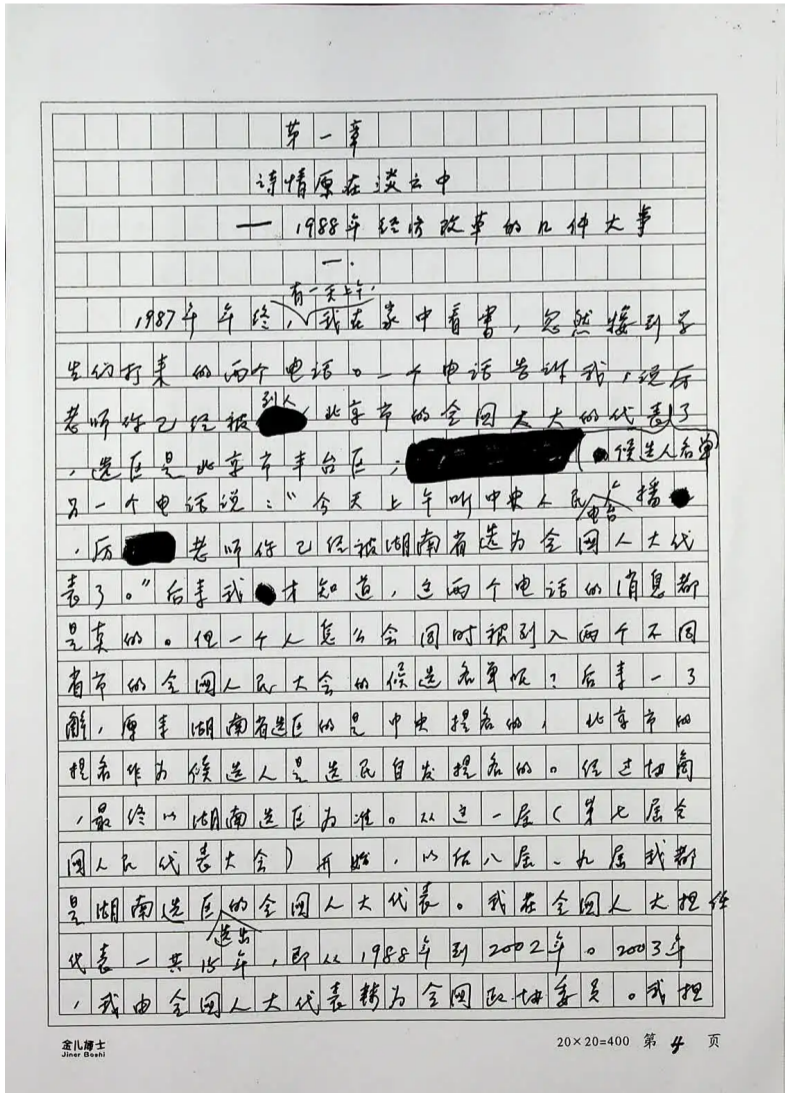 第一章
诗情原在淡云中
— 1988年经济改革的几件大事
一.
有一天上午,
1987年年终,我在家中看书,忽然接到学
生们打来的两个电话。一个电话告诉我,说厉
列入
老师你已经被 北京市的全国人大的代表了
,选区是北京市丰台区; 候选人名单
另一个电话说:“今天上午听中央人民 播
电台
,厉 老师你已经被湖南省选为全国人大代
表了。”后来我 才知道,这两个电话的消息都
是真的。但一个人怎么会同时被列入两个不同
省市的全国人民大会的候选名单呢?后来一了
解,原来湖南省选区的是中央提名的,北京市的
提名作为候选人是选民自发提名的。经过协商
,最终以湖南选区为准。从这一届(第七届全
国人民代表大会)开始,以后八届、九届我都
是湖南选区的全国人大代表。我在全国人大担任
选出
代表一共15年,即从1988年到2002年。2003年
,我由全国人大代表转为全国政协委员。我担
金儿博士
Jiner Boshi
20×20=400 第 4 页